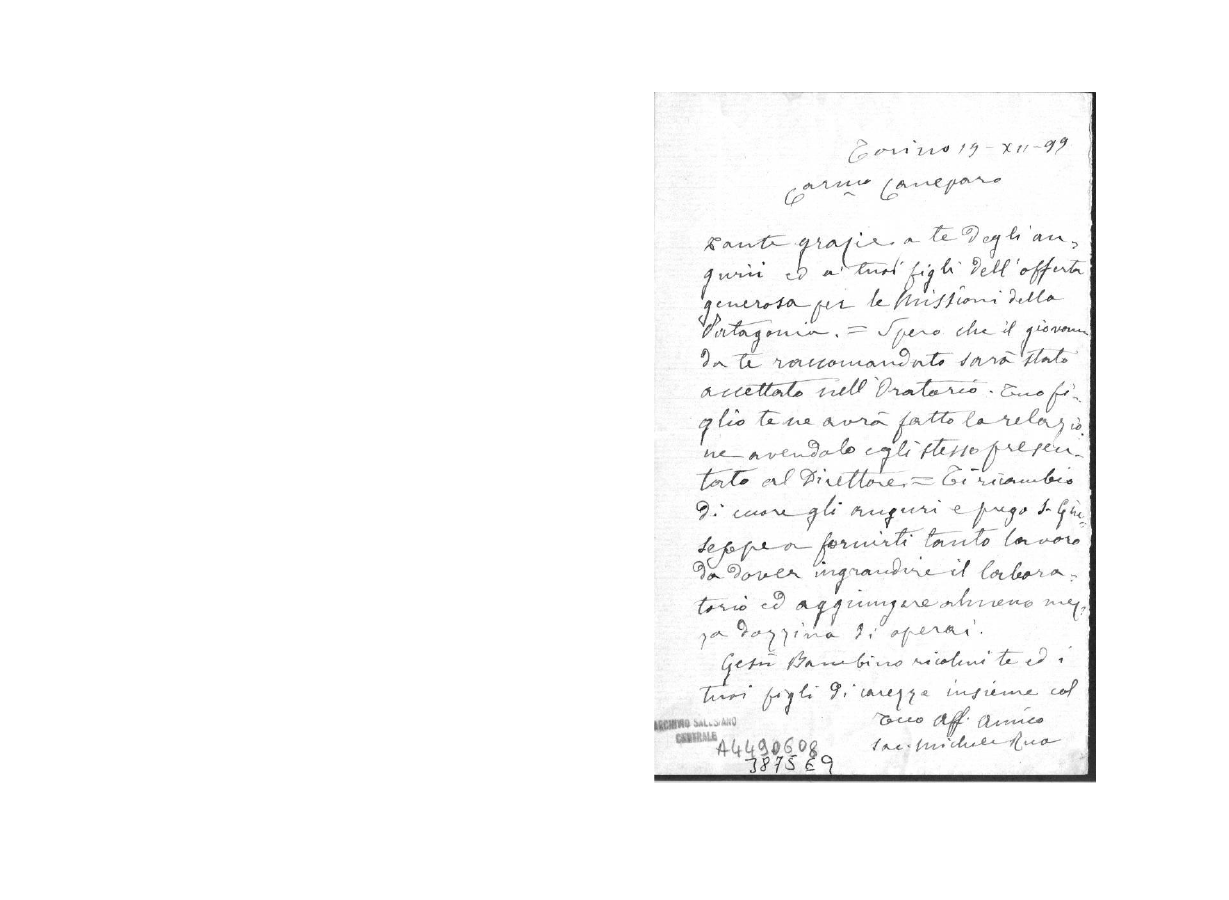 Torino 19-XII-99
Carmo Caneparo
Tante grazie a te degli au=
gurii ed ai tuoi figli dell'offerta
generosa per le Missioni della
Patagonia. = Spero che il giovane
da te raccomandato sarà stato
accettato nell'Oratorio. Tuo fi-
glio te ne avrà fatto la relazio
ne avendolo egli stesso presen-
tato al Direttore. = Ti ricambio
di cuore gli auguri e prego S. Giu=
seppe a fornirti tanto lavoro
da dover ingrandire il labora=
torio ed aggiungere almeno mez-
za dozzina di operai.
Gesù Bambino ricolmi te ed i
tuoi figli di carezze insieme col
Tuo Aff. Amico
Sac. Michele Rua
ARCHIVIO SALESIANO
CENTRALE
A4490608
3875 E9